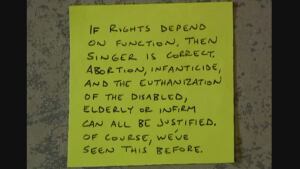 IF RIGHTS DEPEND
ON FUNCTION, THEN
SINGER IS CORRECT.
ABORTION, INFANTICIDE,
AND THE EUTHANIZATION
OF THE DISABLED,
ELDERLY OR INFIRM
CAN ALL BE JUSTIFIED.
OF COURSE, WE'VE
SEEN THIS BEFORE.